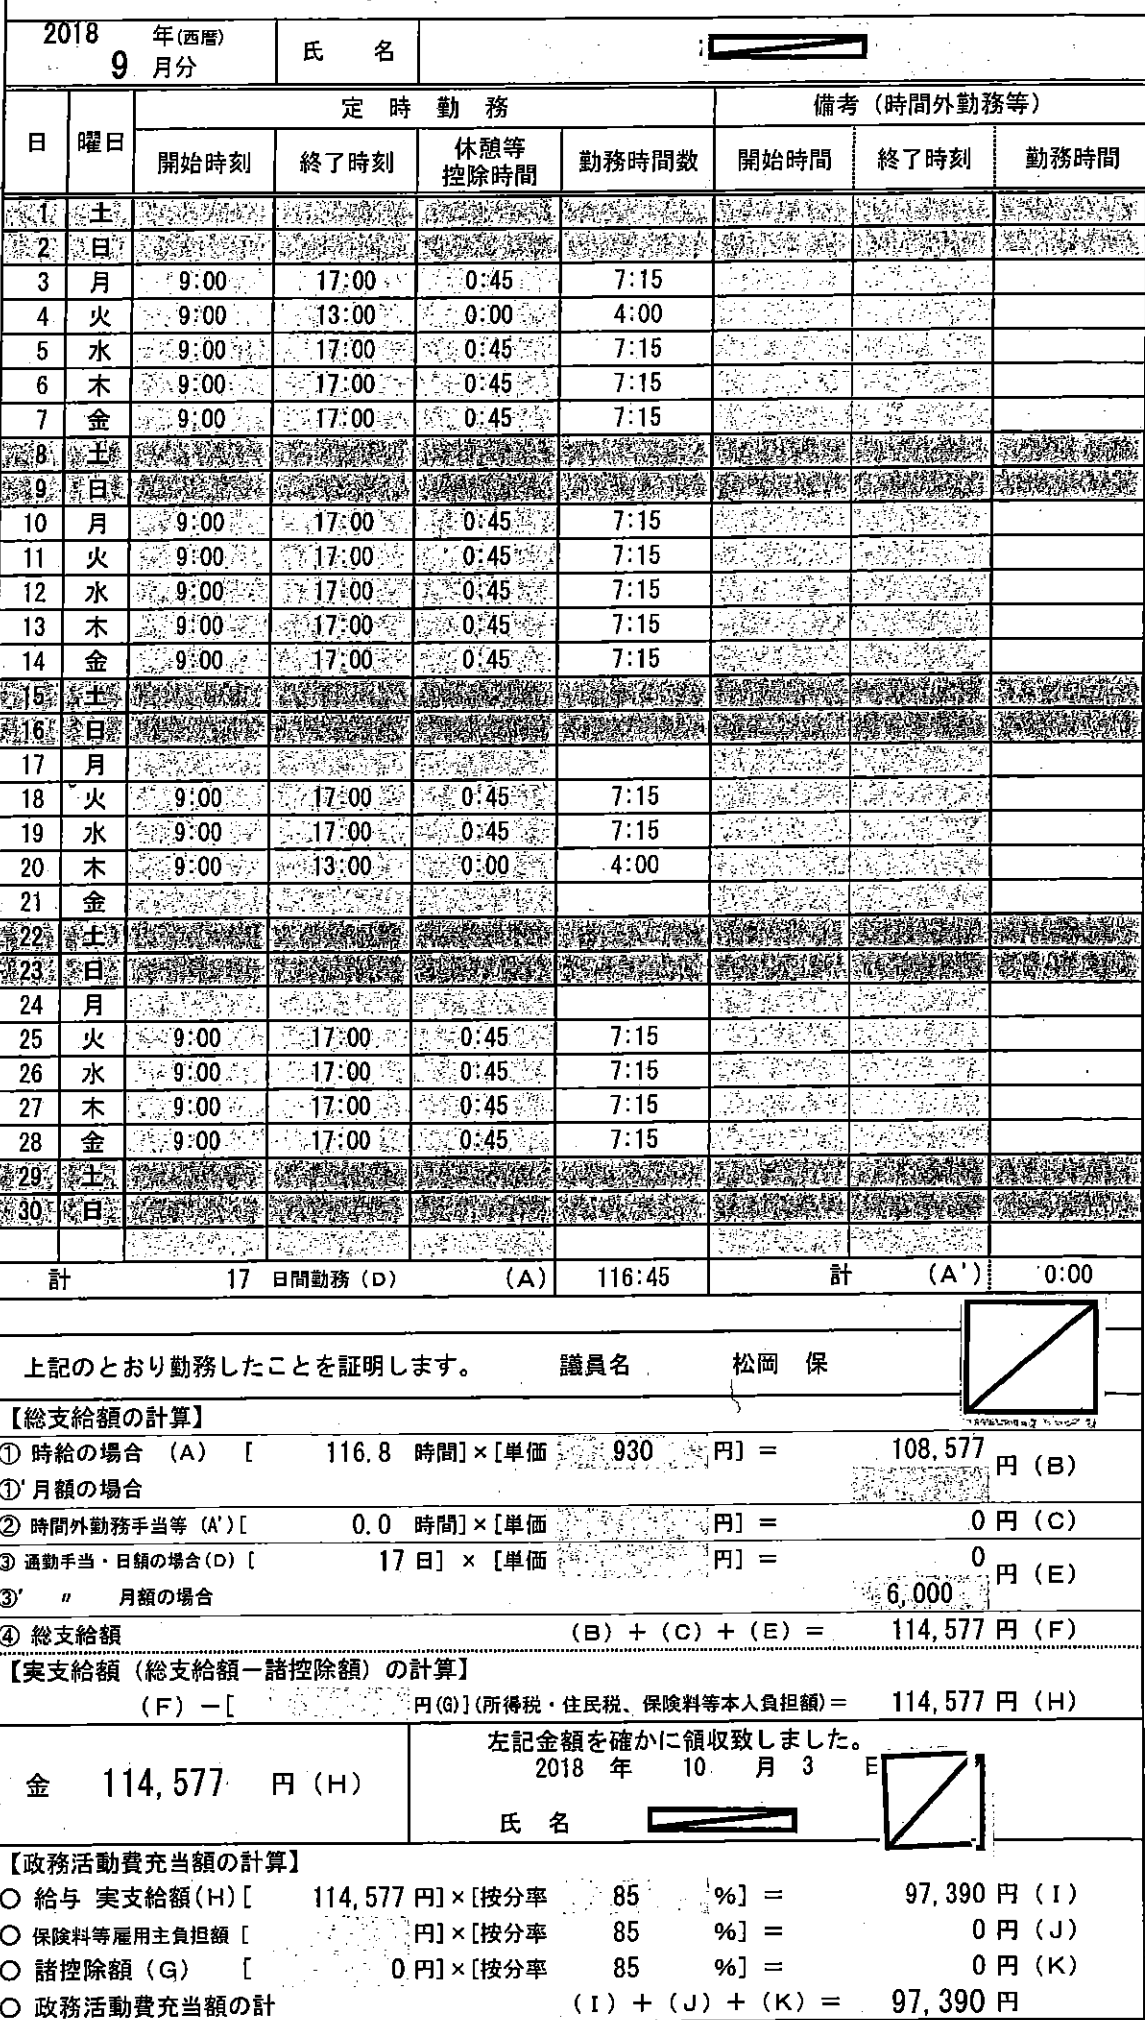 2018 年(西暦)
9 月分
氏 名
日 曜日 定時勤務 備考(時間外勤務等)
開始時刻 終了時刻 休憩等控除時間 勤務時間数 開始時間 終了時刻 勤務時間
1 土
2 日
3 月 9:00 17:00 0:45 7:15
4 火 9:00 13:00 0:00 4:00
5 水 9:00 17:00 0:45 7:15
6 木 9:00 17:00 0:45 7:15
7 金 9:00 17:00 0:45 7:15
8 土
9 日
10 月 9:00 17:00 0:45 7:15
11 火 9:00 17:00 0:45 7:15
12 水 9:00 17:00 0:45 7:15
13 木 9:00 17:00 0:45 7:15
14 金 9:00 17:00 0:45 7:15
15 土
16 日
17 月
18 火 9:00 17:00 0:45 7:15
19 水 9:00 17:00 0:45 7:15
20 木 9:00 13:00 0:00 4:00
21 金
22 土
23 日
24 月
25 火 9:00 17:00 0:45 7:15
26 水 9:00 17:00 0:45 7:15
27 木 9:00 17:00 0:45 7:15
28 金 9:00 17:00 0:45 7:15
29 土
30 日
計 17 日間勤務(D) (A) 116:45 計 (A') 0:00
上記のとおり勤務したことを証明します。 議員名 松岡 保
【総支給額の計算】
① 時給の場合 (A) [ 116.8 時間]×[単価 930 円] = 108,577 円 (B)
①' 月額の場合
② 時間外勤務手当等 (A')[ 0.0 時間]×[単価 円] = 0 円 (C)
③ 通勤手当・日額の場合(D) [ 17 日] × [単価 円] = 0 円 (E)
③' 〃 月額の場合 6,000
④ 総支給額 (B) + (C) + (E) = 114,577 円 (F)
【実支給額(総支給額ー諸控除額)の計算】
(F) ー[ 円(G)](所得税・住民税、保険料等本人負担額)= 114,577 円 (H)
金 114,577 円 (H)
左記金額を確かに領収致しました。
2018 年 10 月 3 日
氏 名
【政務活動費充当額の計算】
○ 給与 実支給額(H)[ 114,577 円]×[按分率 85 %] = 97,390 円 (I)
○ 保険料等雇用主負担額 [ 円]×[按分率 85 %] = 0 円 (J)
○ 諸控除額(G) [ 0 円]×[按分率 85 %] = 0 円 (K)
○ 政務活動費充当額の計 (I) + (J) + (K) = 97,390 円